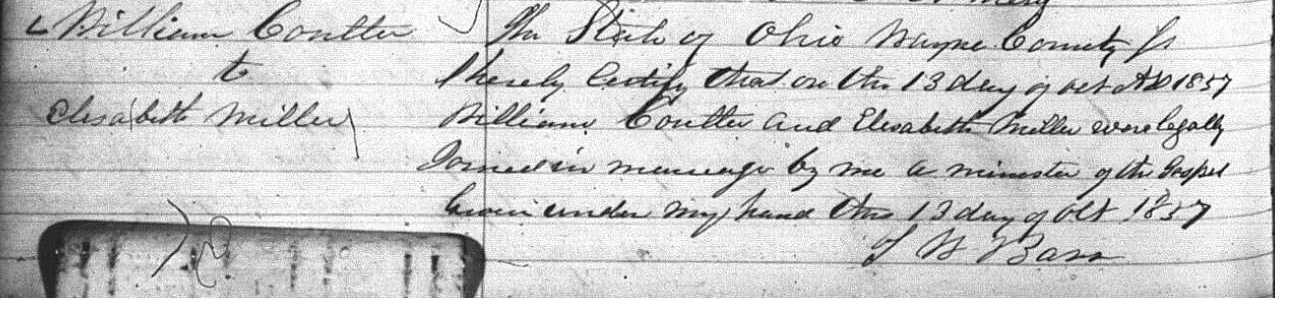 William Coulter
to
Elisabeth Miller
The State of Ohio Wayne County ss
I hereby Certify that on the 13 day of oct AD 1857
William Coulter and Elisabeth Miller were legally
Joined in marriage by me a minister of the Gospel
Given under my hand this 13 day of Oct 1857